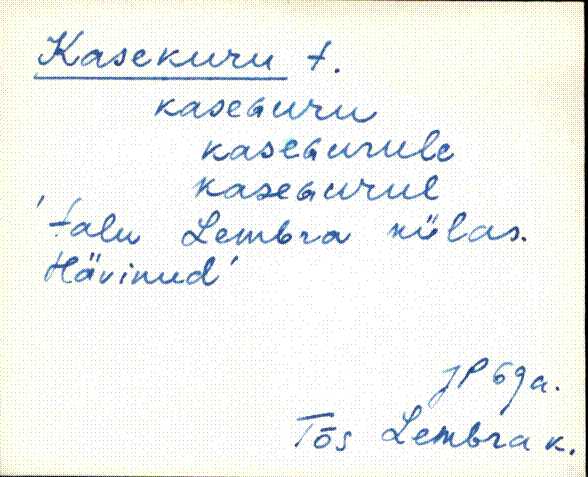 Kasekuru t.
kaseɢuru
kaseɢurule
kaseɢurul
'talu Lembra külas.
Hävinud'
JP 69a.
Tõs Lembra k.